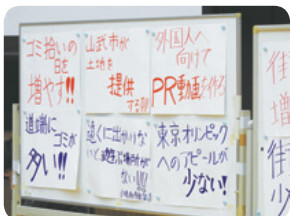 ゴミ拾いの
日を
増やす!!
山武市が
土地を
提供
する!!!
外国人へ
向けて
PR動画を作る
道端に
ゴミが
多い!!
遠くに出かけな
いと
ない!!!
東京オリンピック
へのアピールが
少ない!
街
増
街
少